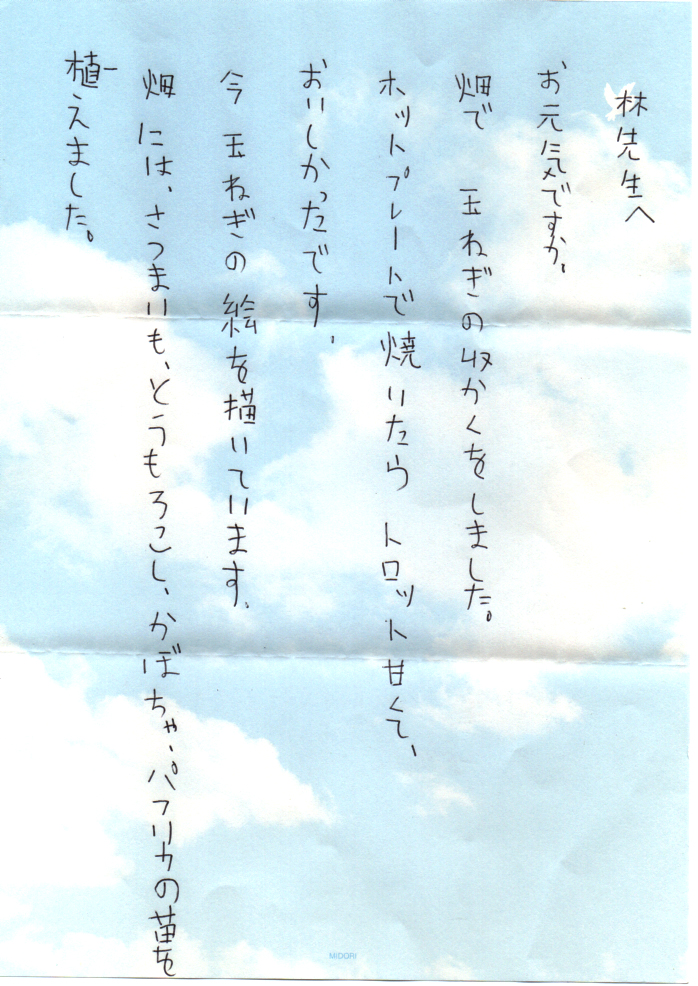 林先生へ
お元気ですか。
畑で 玉ねぎの収かくをしました。
ホットプレートで焼いたら トロット甘くて、
おいしかったです。
今 玉ねぎの絵を描いています。
畑には、さつまいも、とうもろこし、かぼちゃ、パフリカの苗を
植えました。
MIDORI